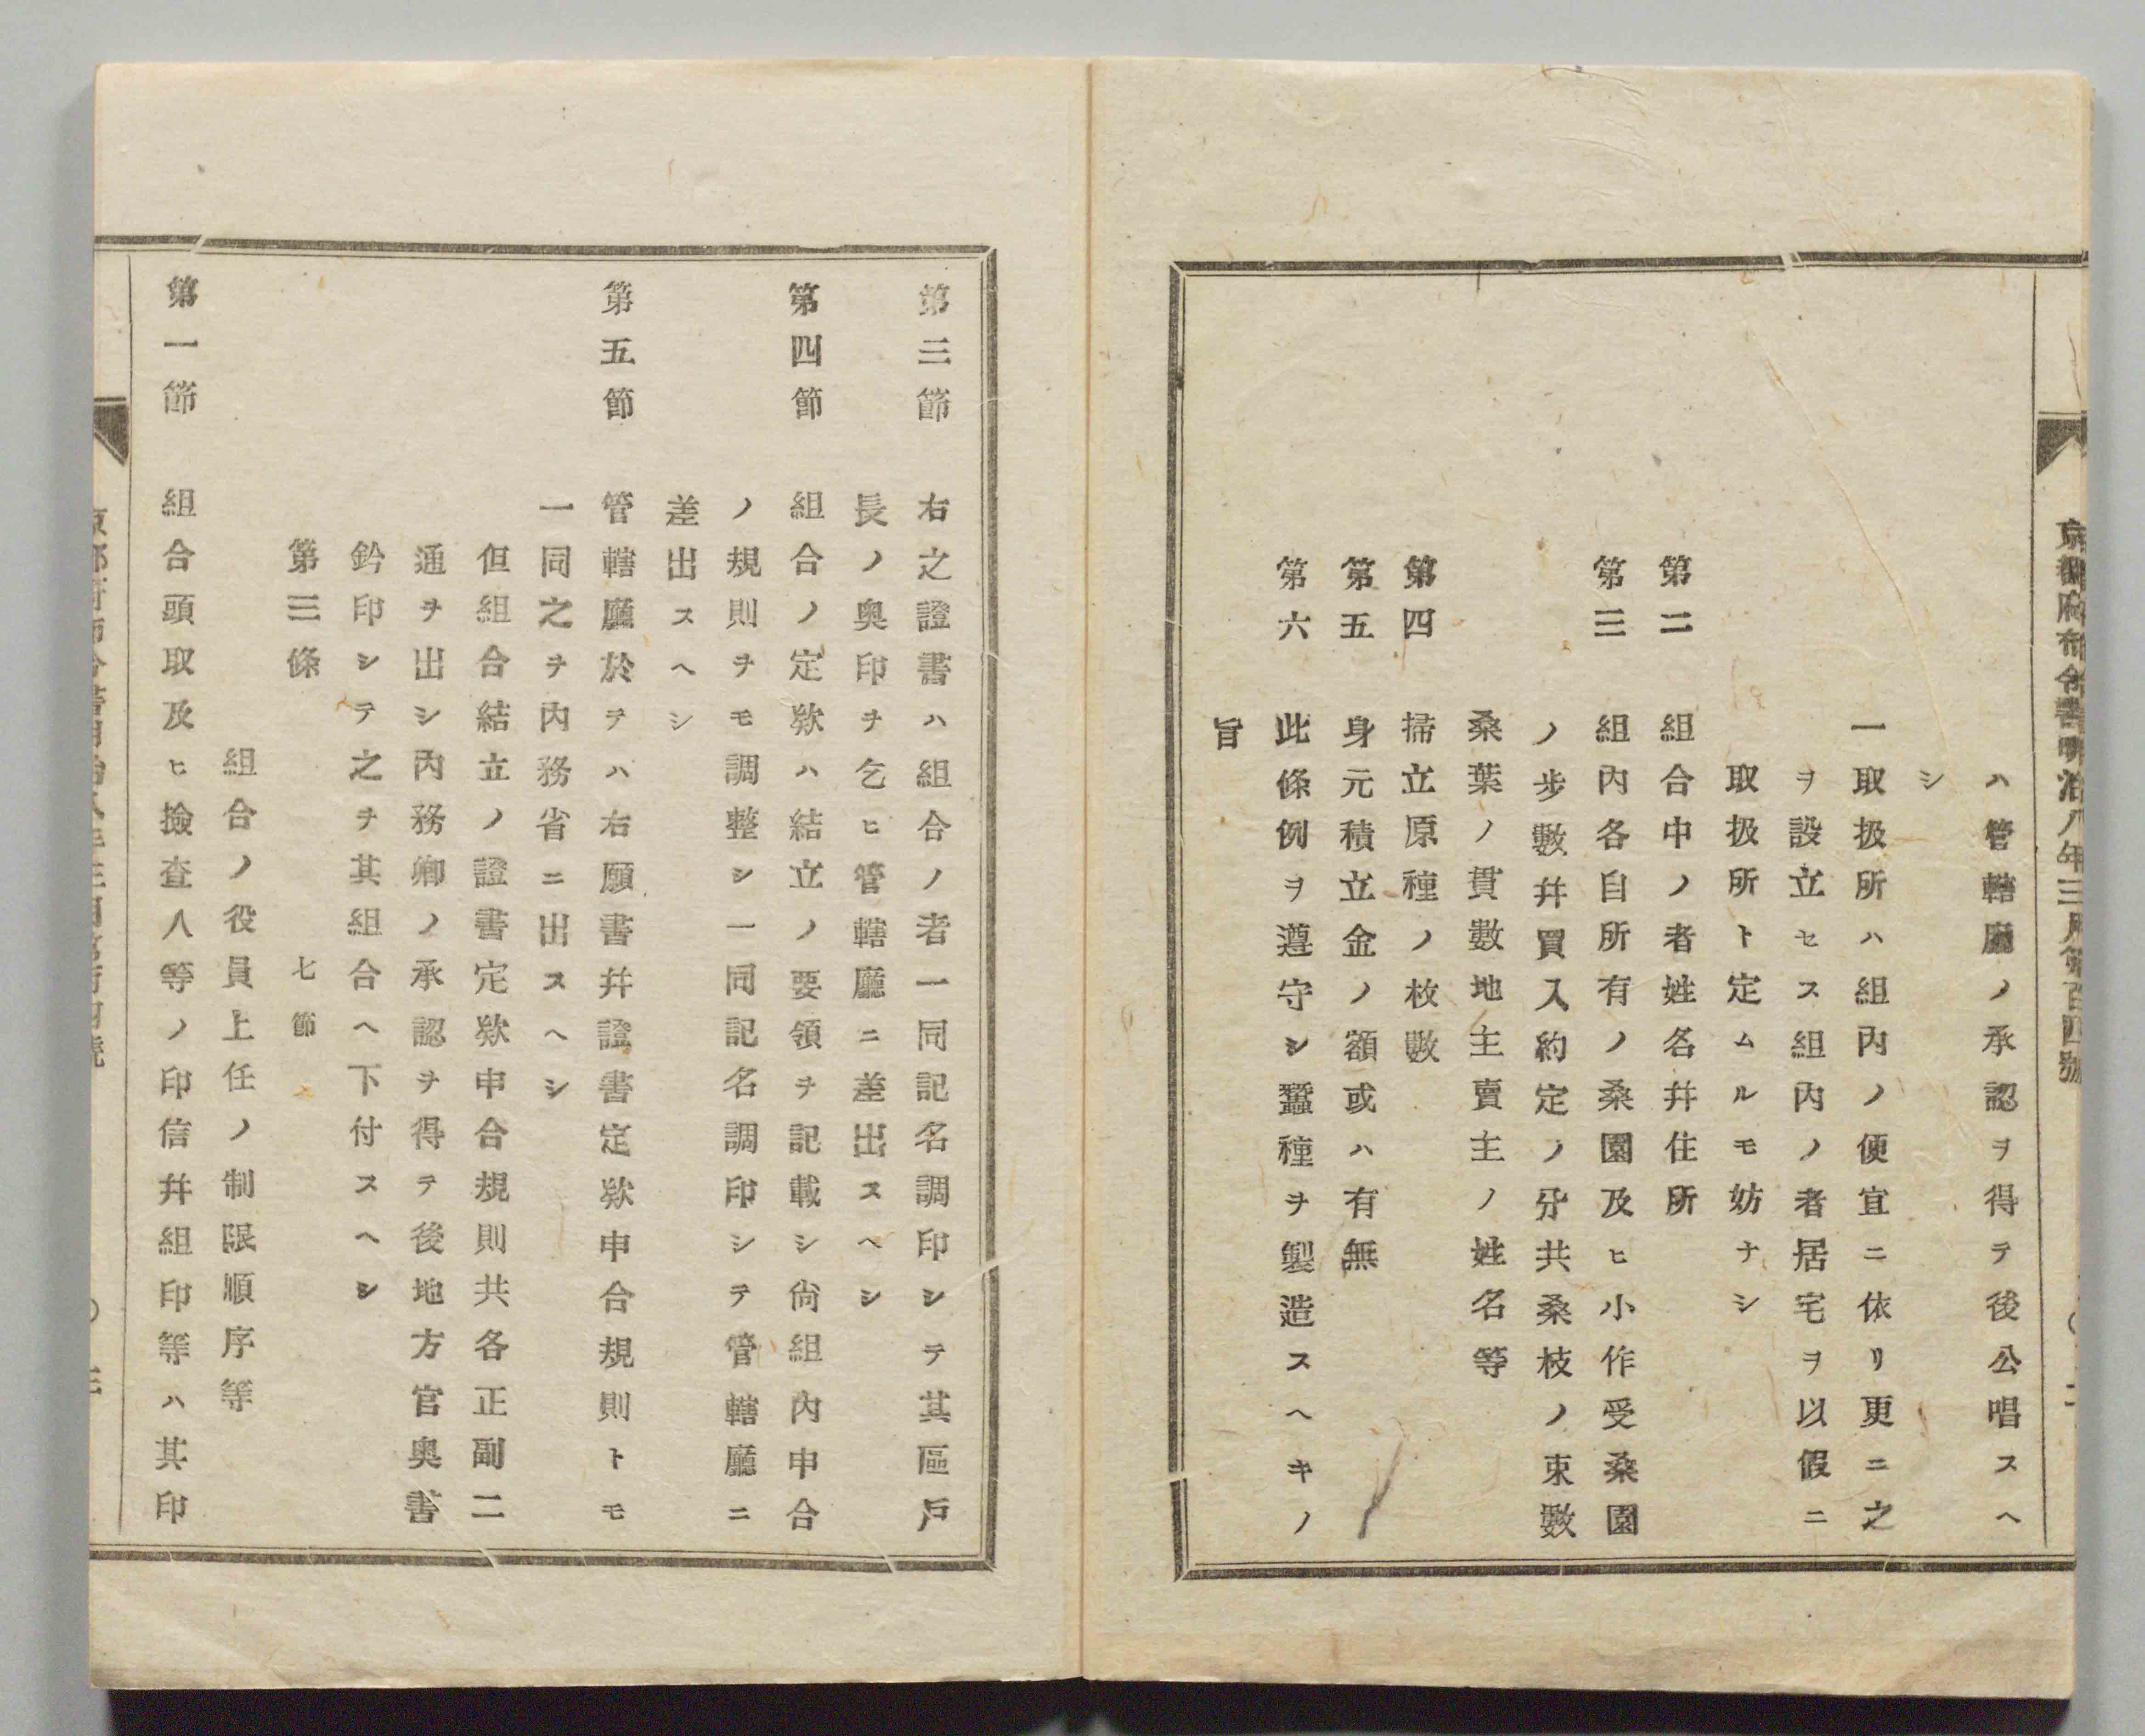 京都府布令書明治八年三月第百四號
ハ管轄廳ノ承認ヲ得テ後公唱スヘ
シ
一取扱所ハ組内ノ便宜ニ依リ更ニ之
ヲ設立セス組内ノ者居宅ヲ以假ニ
取扱所ト定ムルモ妨ナシ
第二 組合中ノ者姓名幷住所
第三 組内各自所有ノ桑園及ヒ小作受桑園
ノ歩數幷買入約定ノ分共桑枝ノ束數
桑葉ノ貫數地主賣主ノ姓名等
第四 掃立原種ノ枚數
第五 身元積立金ノ額或ハ有無
第六 此條例ヲ遵守シ蠶種ヲ製造スヘキノ
旨
第三節 右之證書ハ組合ノ者一同記名調印シテ其區戸
長ノ奥印ヲ乞ヒ管轄廳ニ差出スヘシ
第四節 組合ノ定欵ハ結立ノ要領ヲ記載シ尙組内申合
ノ規則ヲモ調整シ一同記名調印シテ管轄廳ニ
差出スヘシ
第五節 管轄廳於テハ右願書幷證書定欵申合規則トモ
一同之ヲ内務省ニ出スヘシ
但組合結立ノ證書定欵申合規則共各正副二
通ヲ出シ内務卿ノ承認ヲ得テ後地方官奥書
鈐印シテ之ヲ其組合ヘ下付スヘシ
第三條 七節
組合ノ役員上任ノ制限順序等
第一節 組合頭取及ヒ撿査人等ノ印信幷組印等ハ其印